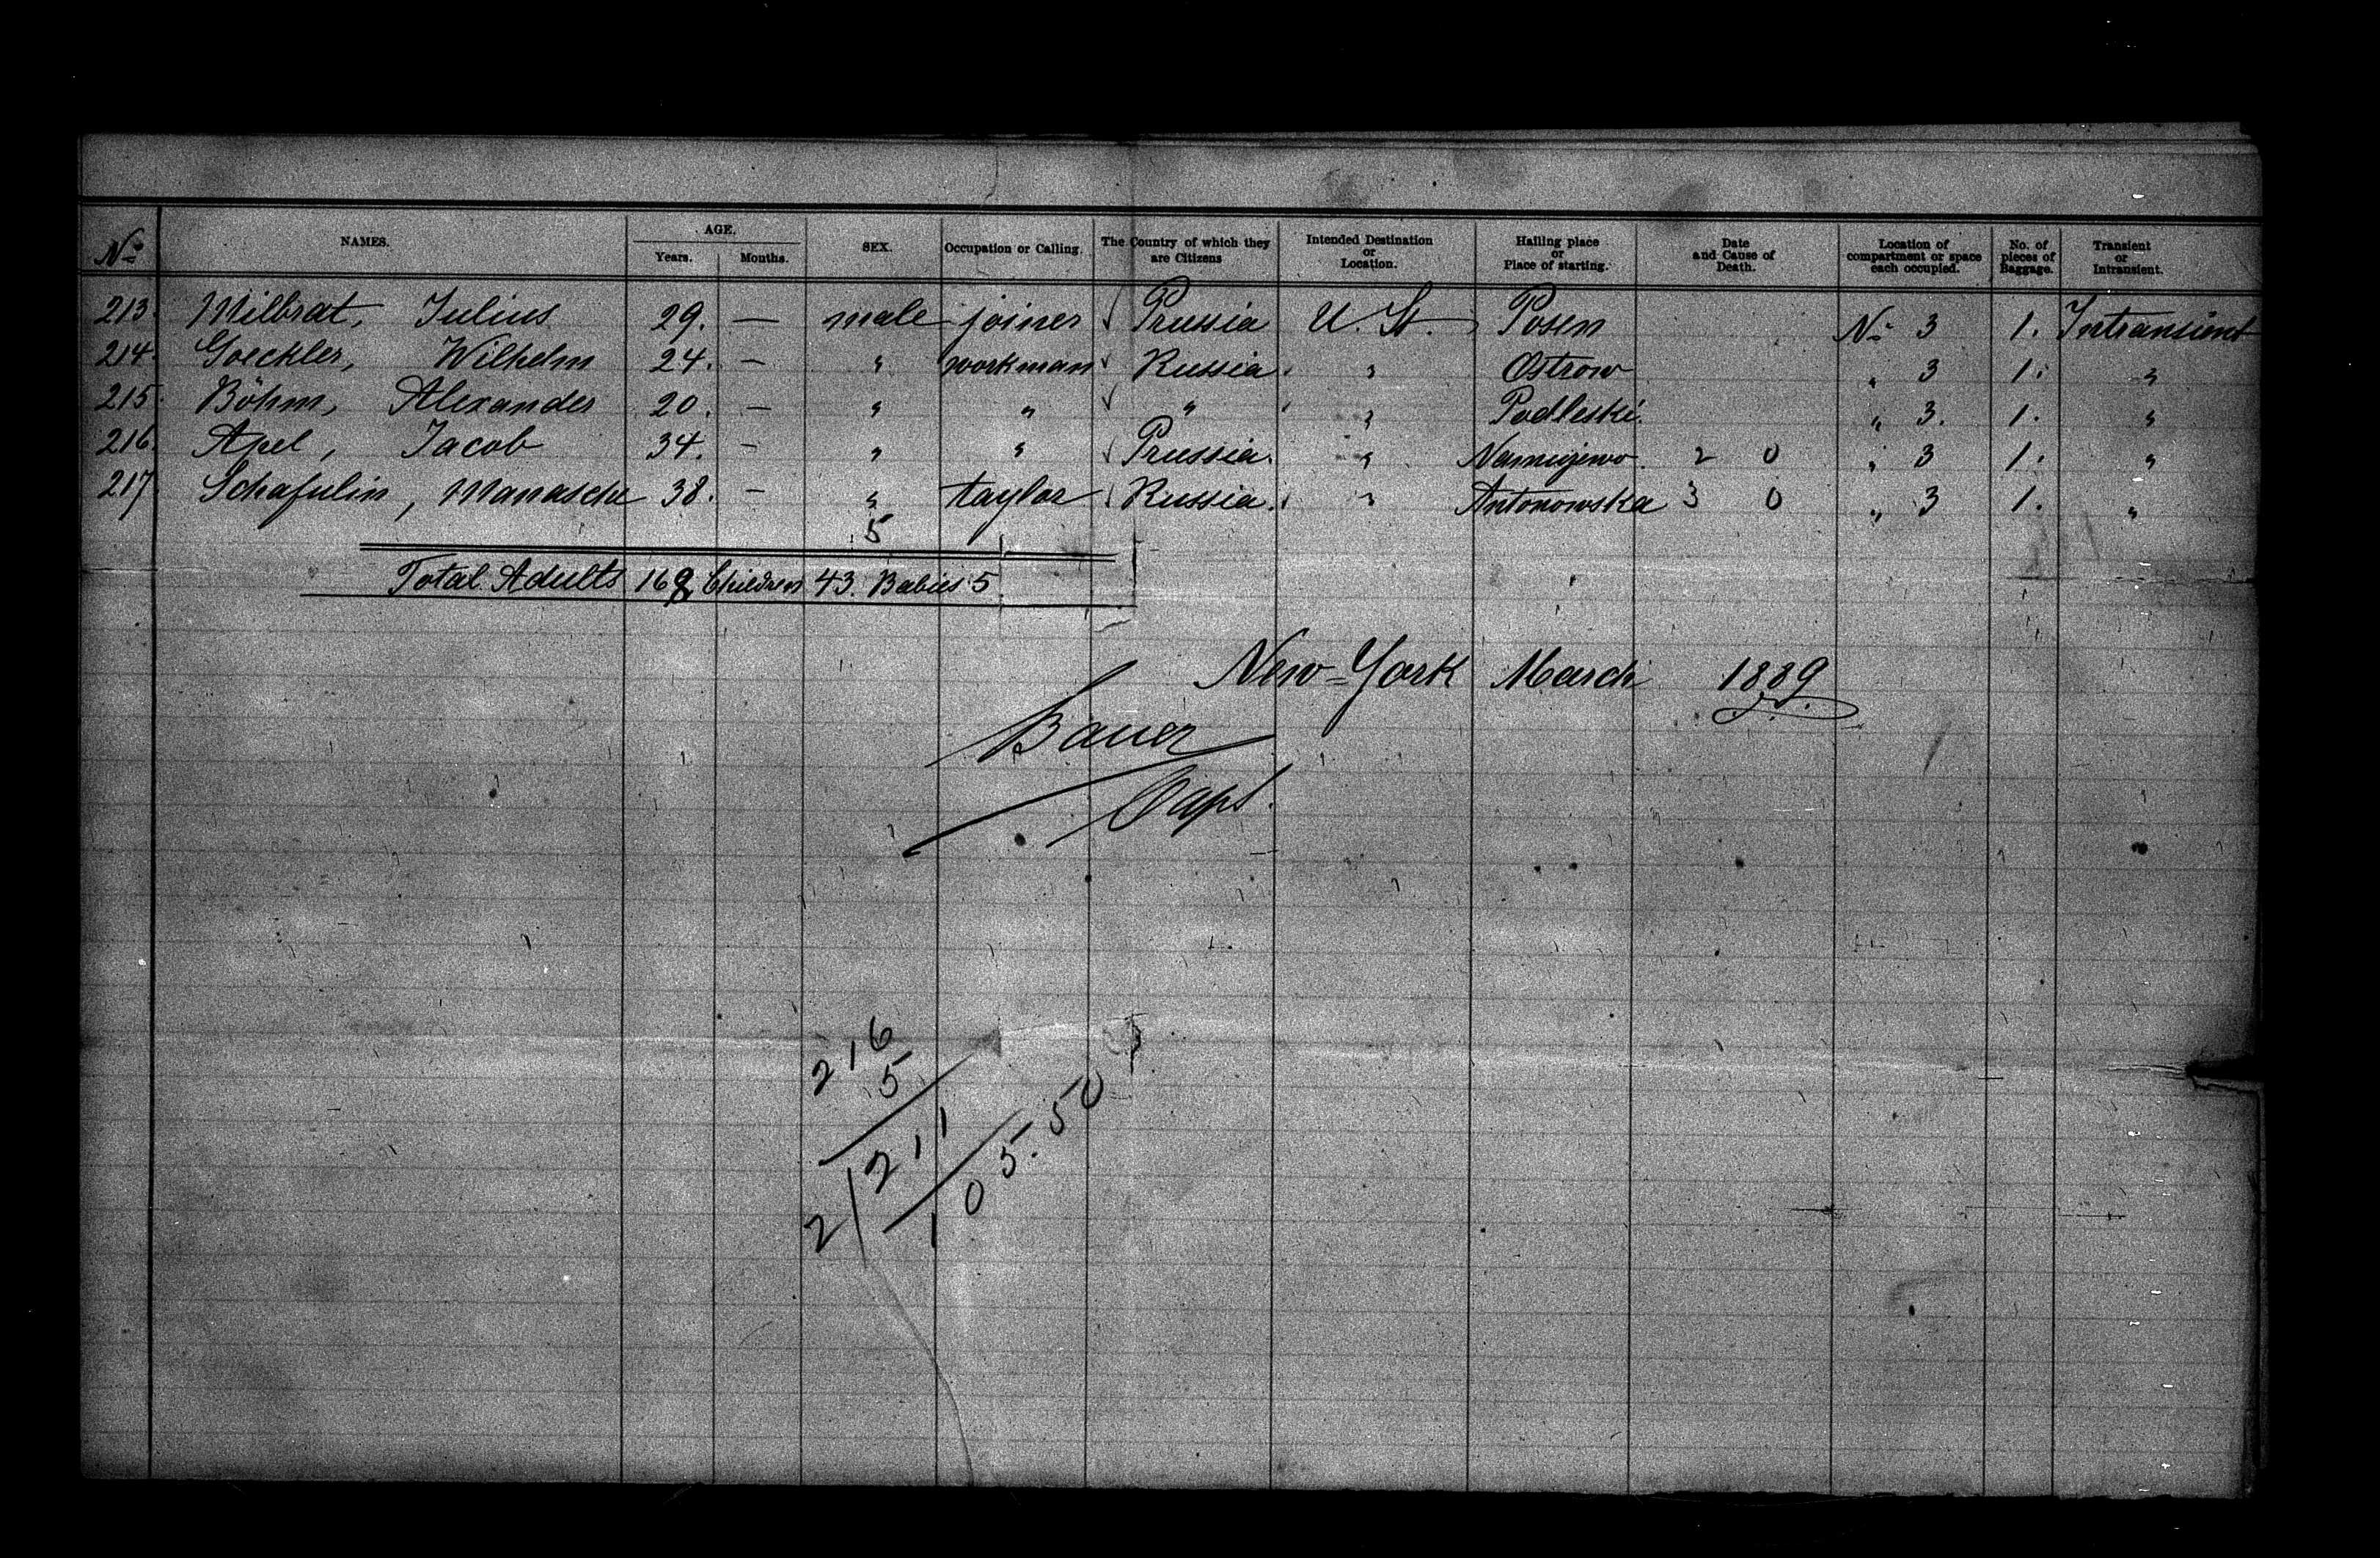 No NAMES. AGE. Years. Months. SEX. Occupation or Calling. The Country of which they are Citizens Intended Destination or Location. Hailing place or Place of starting. Date and Cause of Death. Location of compartment or space each occupied. No. of pieces of Baggage. Transient or Intransient.
213. Milbrat, Julius 29. — male joiner Prussia U. St. Posen No 3 1. Intransient
214. Goeckler, Wilhelm 24. — " workman Russia. " Ostrow " 3 1. "
215. Böhm, Alexander 20. — " " " " Podleski. " 3. 1. "
216. Apel, Jacob 34. — " " Prussia. " 2 0 " 3 1. "
217. Schafulin, Manasche 38. — " taylor Russia. " Antonowska 3 0 " 3 1. "
5
Total Adults Children 43. Babies 5
New-York March 1889
Bauer
Capt.
216
5
2 211
105.50